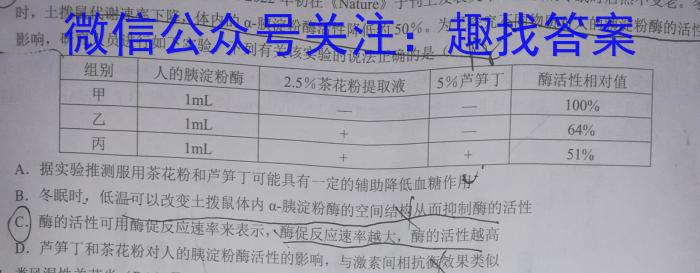 年初在《Nature》子刊上发表文
时，土拨鼠代谢速率下降，体内α-胰淀粉酶活性降低约50%。为
粉酶的活性
影响，
下列有关该实验的说法正确的是（
微信公众号关注：趣找答案
组别 人的胰淀粉酶 2.5%茶花粉提取液 5%芦笋丁 酶活性相对值
甲 1mL — — 100%
乙 1mL + — 64%
丙 1mL + + 51%
A. 据实验推测服用茶花粉和芦笋丁可能具有一定的辅助降低血糖作用
B. 冬眠时，低温可以改变土拨鼠体内α-胰淀粉酶的空间结构从而抑制酶的活性
C. 酶的活性可用酶促反应速率来表示，酶促反应速率越大，酶的活性越高
D. 芦笋丁和茶花粉对人的胰淀粉酶活性的影响，与激素间相抗衡效果类似